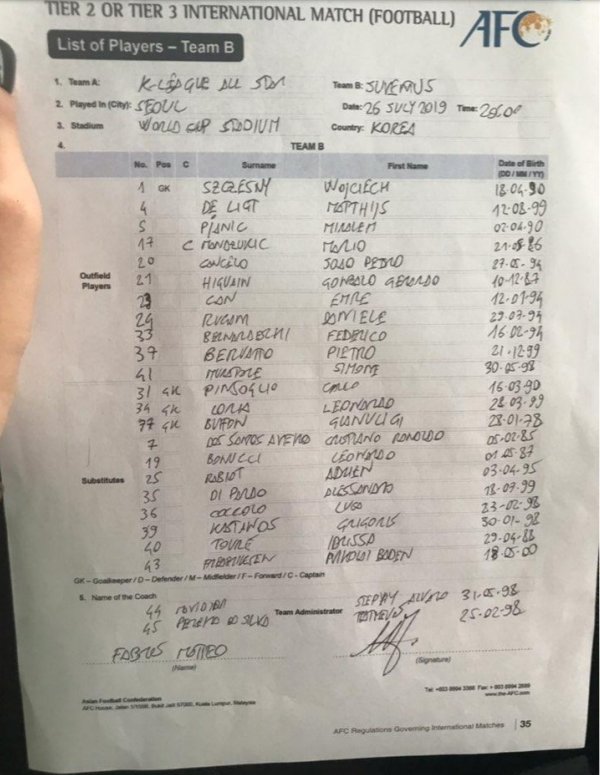 TIER 2 OR TIER 3 INTERNATIONAL MATCH (FOOTBALL) AFC
List of Players – Team B
1. Team A: K-LEAGUE ALL STAR Team B: JUVENTUS
2. Played In (City): SEOUL Date: 26 JULY 2019 Time: 20:00
3. Stadium WORLD CUP STADIUM Country: KOREA
4. TEAM B
No. Pos C Surname First Name Date of Birth (DD / MM / YY)
1 GK SZCZESNY WOJCIECH 18.04.90
4 DE LIGT MATTHIJS 12-08-99
5 PJANIC MIRALEM 02-04-90
17 C MANDZUKIC MARIO 21-05-86
20 CANCELO JOAO PEDRO 27-05-94
Outfield Players 21 HIGUAIN GONZALO GERARDO 10-12-87
23 CAN EMRE 12-01-94
24 RUGANI DANIELE 29-07-94
33 BERNARDESCHI FEDERICO 16-02-94
37 BERUATTO PIETRO 21-12-99
41 MURATORE SIMONE 30-05-98
31 GK PINSOGLIO CARLO 16-03-90
34 GK LORIA LEONARDO 28-03-99
77 GK BUFFON GIANLUIGI 28-01-78
7 DOS SANTOS AVEIRO CRISTIANO RONALDO 05-02-85
19 BONUCCI LEONARDO 01-05-87
Substitutes 25 RABIOT ADRIEN 03-04-95
35 DI PARDO ALESSANDRO 18-07-99
36 COCCOLO LUCA 23-02-98
39 KASTANOS GRIGORIS 30-01-98
40 TOURÉ IDRISSA 29-04-98
43 18-05-00
GK – Goalkeeper / D – Defender / M – Midfielder / F – Forward / C - Captain
5. Name of the Coach Team Administrator
44 31-05-98
45 PEREIRA DA SILVA MATHEUS 25-02-98
FABRIS MATTEO
(Name) (Signature)
Asian Football Confederation
AFC House, Jalan 1/155B, Bukit Jalil 57000, Kuala Lumpur, Malaysia
www.the-AFC.com
AFC Regulations Governing International Matches | 35